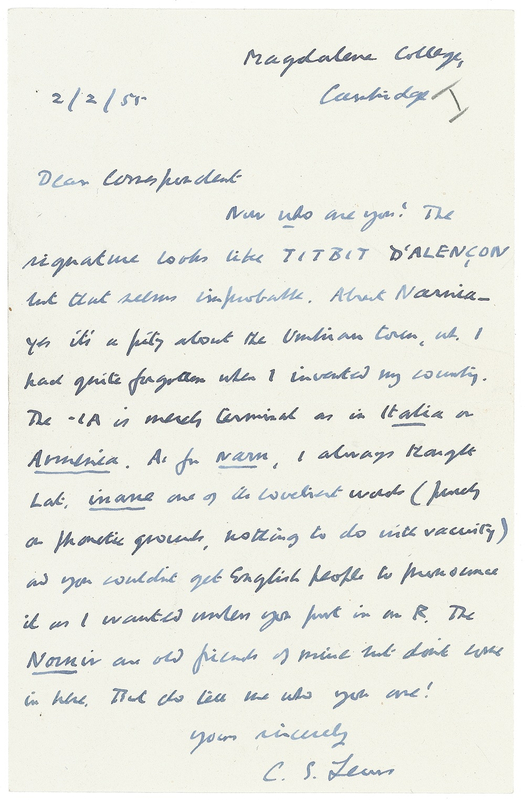 Magdalene College,
Cambridge
2/2/55
Dear Correspondent
Now who are you? The
signature looks like TITBIT D'ALENÇON
but that seems improbable. About Narnia –
yes it's a pity about the Umbrian town, wh. I
had quite forgotten when I invented my country.
The -IA is merely terminal as in Italia or
Armenia. As for Narn, I always thought
Lat. inane one of the loveliest words (purely
on phonetic grounds, nothing to do with vacuity)
and you couldn't get English people to pronounce
it as I wanted unless you put in an R. The
Nornir are old friends of mine but don't come
in here. But do tell me who you are!
Yours sincerely
C. S. Lewis